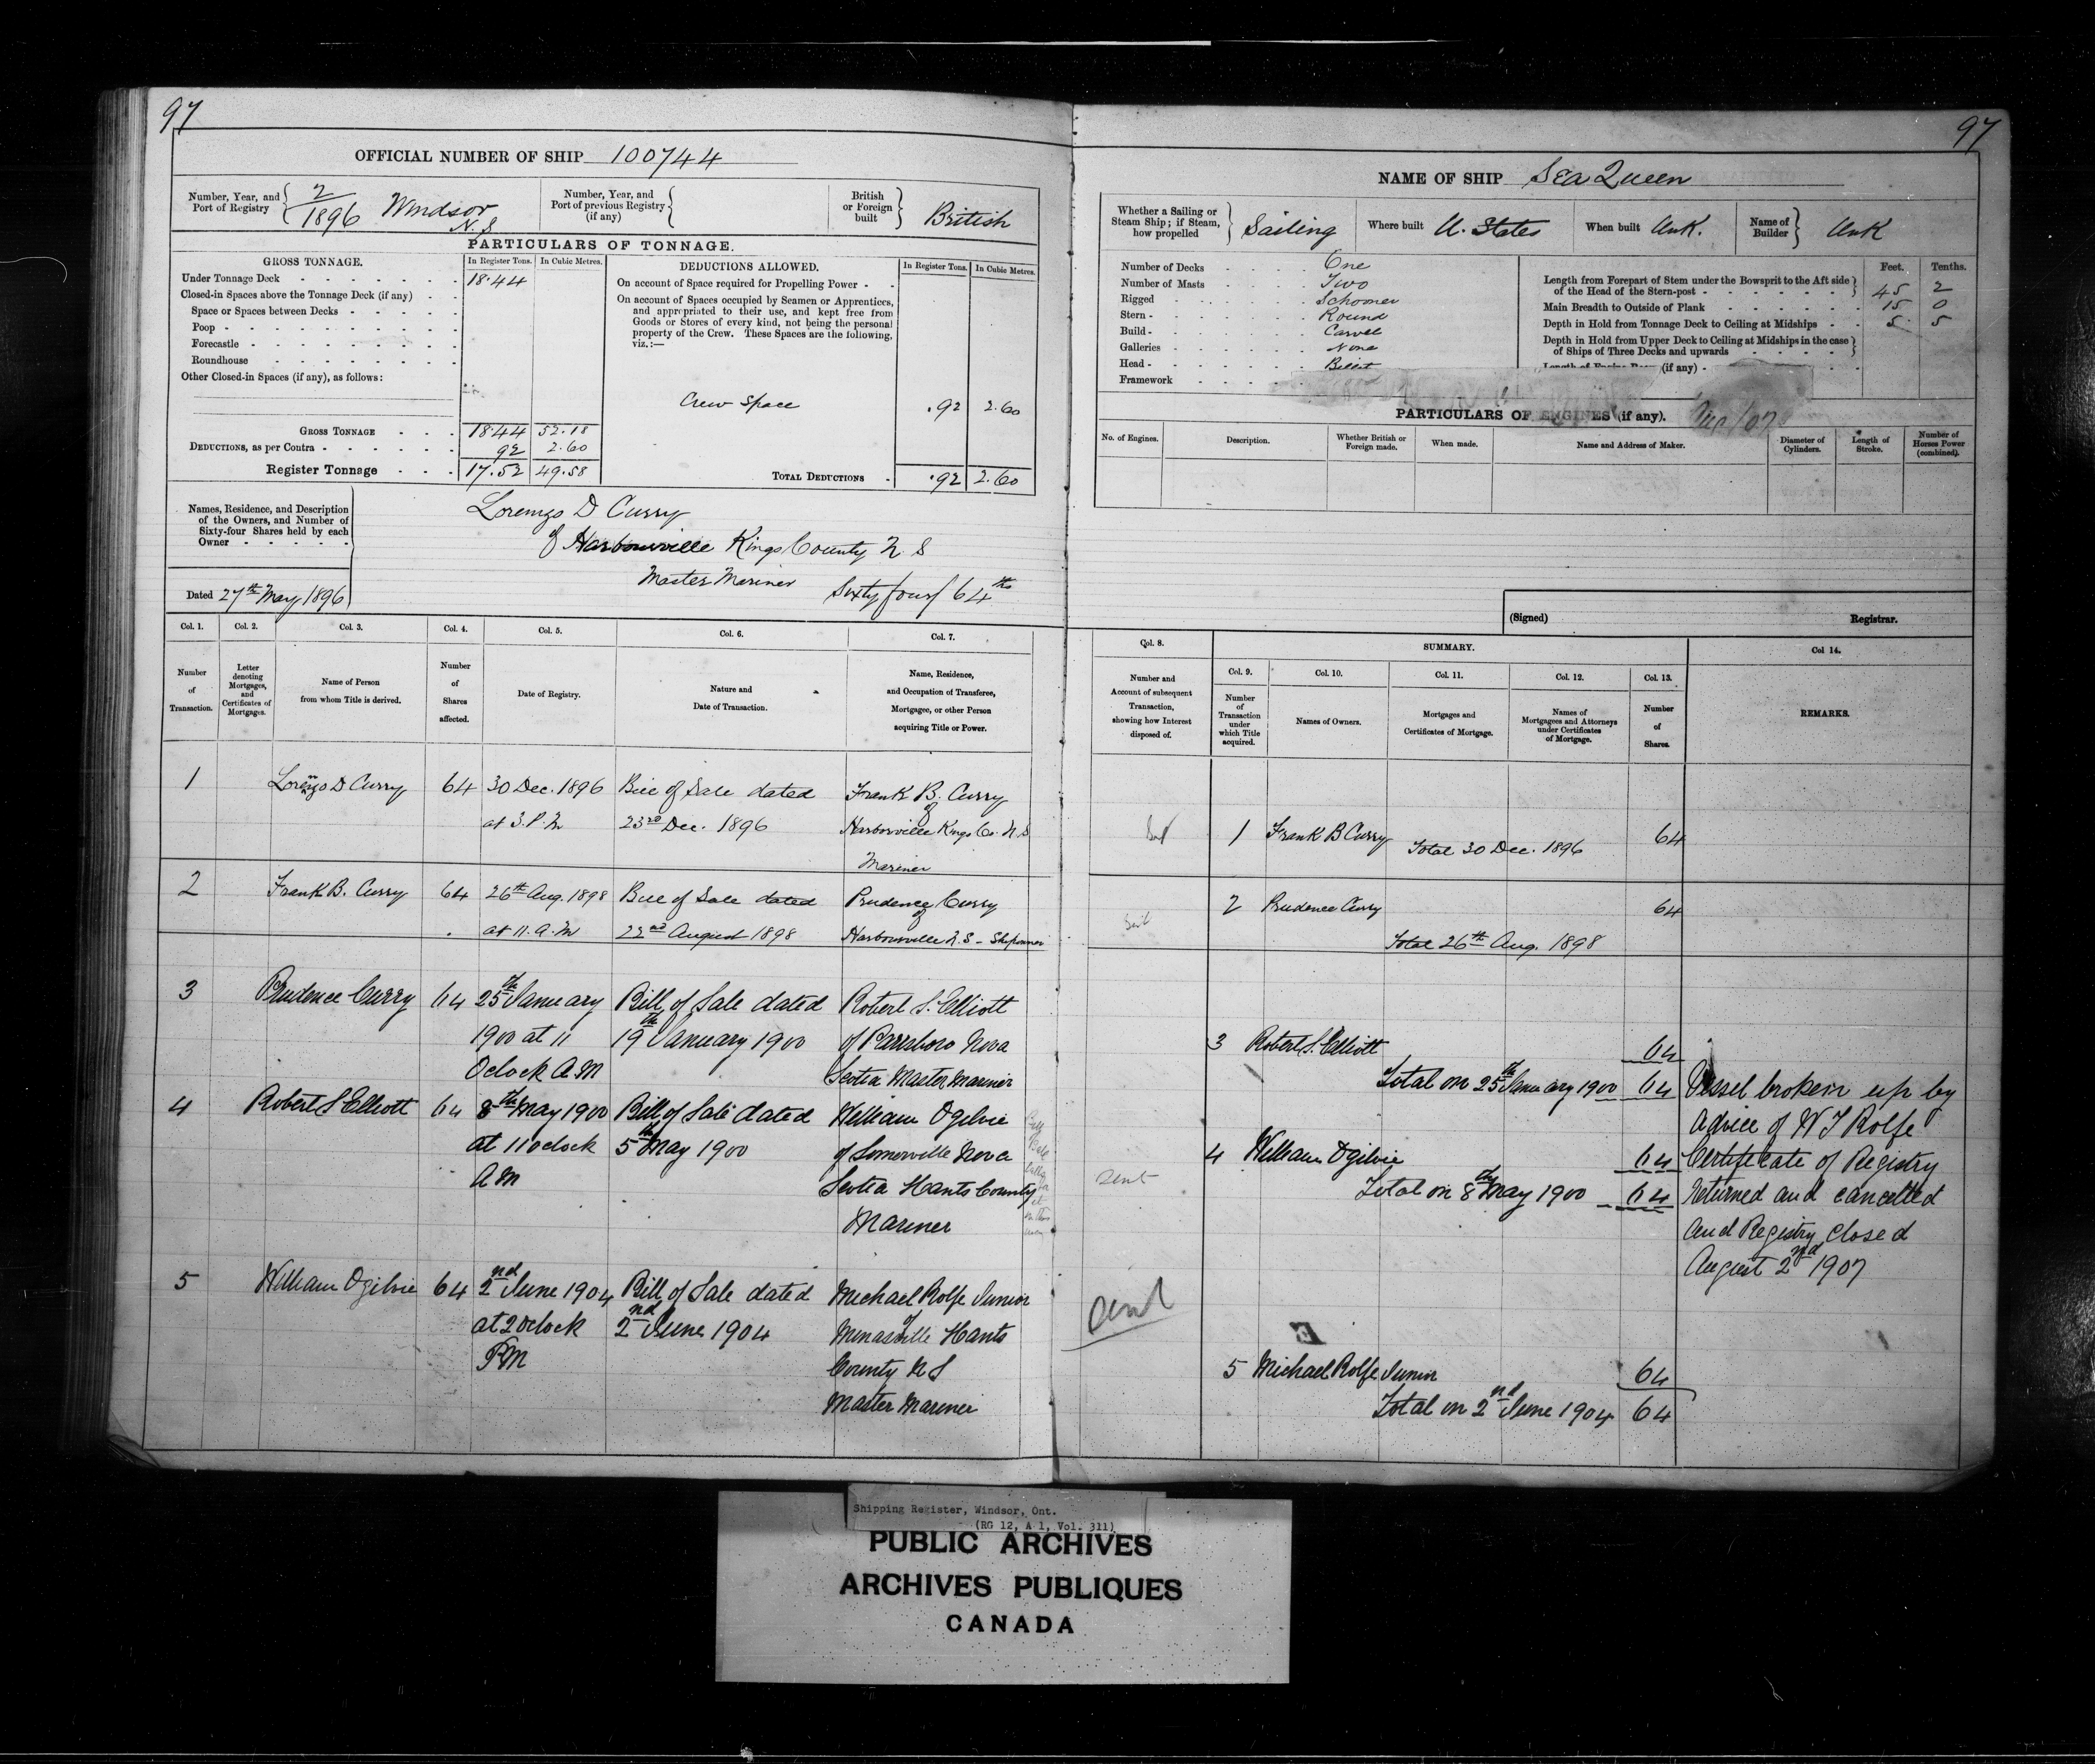 97
OFFICIAL NUMBER OF SHIP 100744
Number, Year, and Port of Registry
2/1896 Windsor N.S
Number, Year, and Port of previous Registry (if any)
British or Foreign built
British
PARTICULARS OF TONNAGE.
GROSS TONNAGE. In Register Tons. In Cubic Metres.
Under Tonnage Deck 18.44
Closed-in Spaces above the Tonnage Deck (if any)
Space or Spaces between Decks
Poop
Forecastle
Roundhouse
Other Closed-in Spaces (if any), as follows:
GROSS TONNAGE 18.44 52.18
DEDUCTIONS, as per Contra 92 2.60
Register Tonnage 17.52 49.58
DEDUCTIONS ALLOWED. In Register Tons. In Cubic Metres.
On account of Space required for Propelling Power
On account of Spaces occupied by Seamen or Apprentices,
and appropriated to their use, and kept free from
Goods or Stores of every kind, not being the personal
property of the Crew. These Spaces are the following,
viz.:—
Crew Space .92 2.60
TOTAL DEDUCTIONS .92 2.60
Names, Residence, and Description
of the Owners, and Number of
Sixty-four Shares held by each
Owner
Dated 27th May 1896
Lorenzo D Curry
of Harbourville Kings County N. S
Master Mariner Sixty four/64ths
Col. 1. Col. 2. Col. 3. Col. 4. Col. 5. Col. 6. Col. 7.
Number of Transaction.
Letter denoting Mortgages, and Certificates of Mortgages.
Name of Person from whom Title is derived.
Number of Shares affected.
Date of Registry.
Nature and Date of Transaction.
Name, Residence, and Occupation of Transferee, Mortgagee, or other Person acquiring Title or Power.
1 Lorenzo D Curry 64 30 Dec. 1896 Bill of Sale dated Frank B. Curry
at 3. P. M 23rd Dec. 1896 of
Harborville Kings Co. N. S
Mariner
2 Frank B. Curry 64 26th Aug. 1898 Bill of Sale dated Prudence Curry
at 11. A. M 22nd August 1898 of
Harbourville N. S - Shipowner
3 Prudence Curry 64 25th January Bill of Sale dated Robert S. Elliott
1900 at 11 19th January 1900 of Parrsboro Nova
Oclock A M Scotia Master Mariner
4 Robert S Elliott 64 8th May 1900 Bill of Sale dated William Ogilvie
at 11 oclock 5th May 1900 of Somerville Nova
A M Scotia Hants County
Mariner
5 William Ogilvie 64 2nd June 1904 Bill of Sale dated Michael Rolfe Junior
at 2 oclock 2nd June 1904 of
P M Minasville Hants
County N S
Master Mariner
97
NAME OF SHIP Sea Queen
Whether a Sailing or Steam Ship; if Steam, how propelled
Sailing
Where built U. States
When built Unk.
Name of Builder Unk
Number of Decks One
Number of Masts Two
Rigged Schooner
Stern Round
Build Carvel
Galleries None
Head Billet
Framework
Feet. Tenths.
Length from Forepart of Stem under the Bowsprit to the Aft side
of the Head of the Stern-post 45 2
Main Breadth to Outside of Plank 15 0
Depth in Hold from Tonnage Deck to Ceiling at Midships 5 5
Depth in Hold from Upper Deck to Ceiling at Midships in the case
of Ships of Three Decks and upwards
Length of Engine Room (if any)
PARTICULARS OF ENGINES (if any).
No. of Engines. Description. Whether British or Foreign made. When made. Name and Address of Maker. Diameter of Cylinders. Length of Stroke. Number of Horses Power (combined).
(Signed) Registrar.
Col. 8. SUMMARY. Col 14.
Col. 9. Col. 10. Col. 11. Col. 12. Col. 13.
Number and Account of subsequent Transaction, showing how Interest disposed of.
Number of Transaction under which Title acquired.
Names of Owners.
Mortgages and Certificates of Mortgage.
Names of Mortgagees and Attorneys under Certificates of Mortgage.
Number of Shares.
REMARKS.
1 Frank B Curry 64
Total 30 Dec. 1896
2 Prudence Curry 64
Total 26th Aug. 1898
3 Robert S. Elliott 64
Total on 25th January 1900 64
sent 4 William Ogilvie 64
Total on 8th May 1900 64
5 Michael Rolfe Junior 64
Total on 2nd June 1904 64
Vessel broken up by
Advice of W J Rolfe
Certificate of Registry
returned and cancelled
and Registry closed
August 2nd 1907
Shipping Register, Windsor, Ont.
(RG 12, A 1, Vol. 311)
PUBLIC ARCHIVES
ARCHIVES PUBLIQUES
CANADA